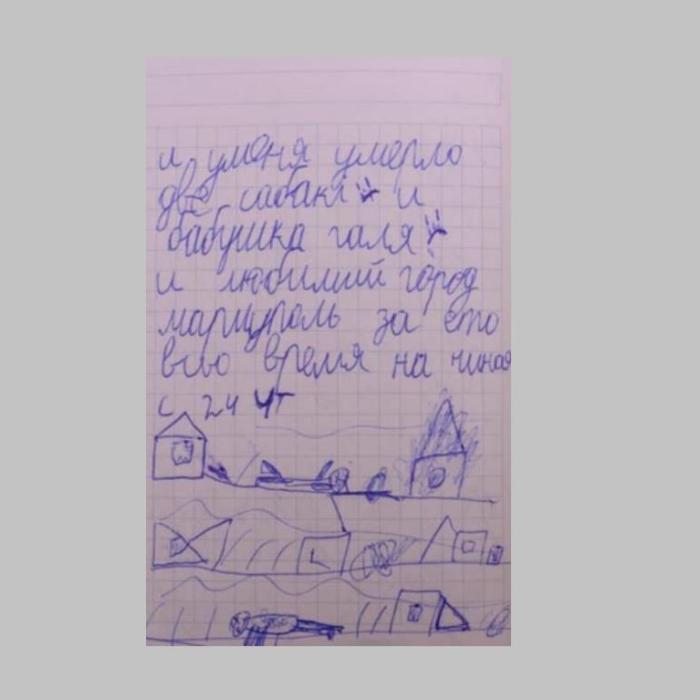 и уменя умерло
две сабакі и
бабушка галя
и любимий город
мариуполь за ето
всю время на чиная
с 24 чт